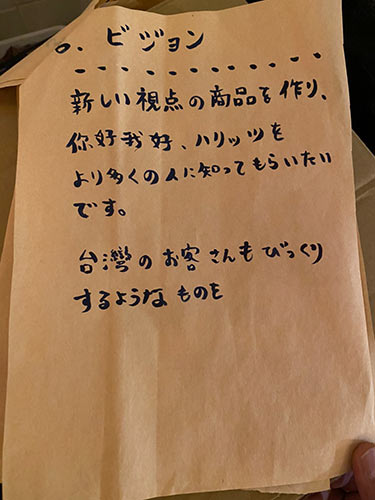 0. ビジョン
新しい視点の商品を作り、
你好我好、ハリッツを
より多くの人に知ってもらいたい
です。
台灣のお客さんもびっくり
するようなものを